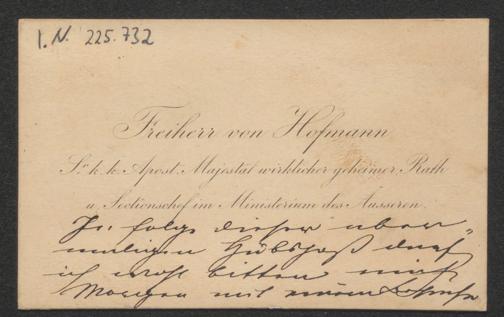 I. N. 225.732
Freiherr von Hofmann
Sr. k. k. Apost. Majestät wirklicher geheimer Rath
u. Sectionschef im Ministerium des Äusseren.
In folge dieser aber=
maligen
ich wohl bitten mich
Morgen mit